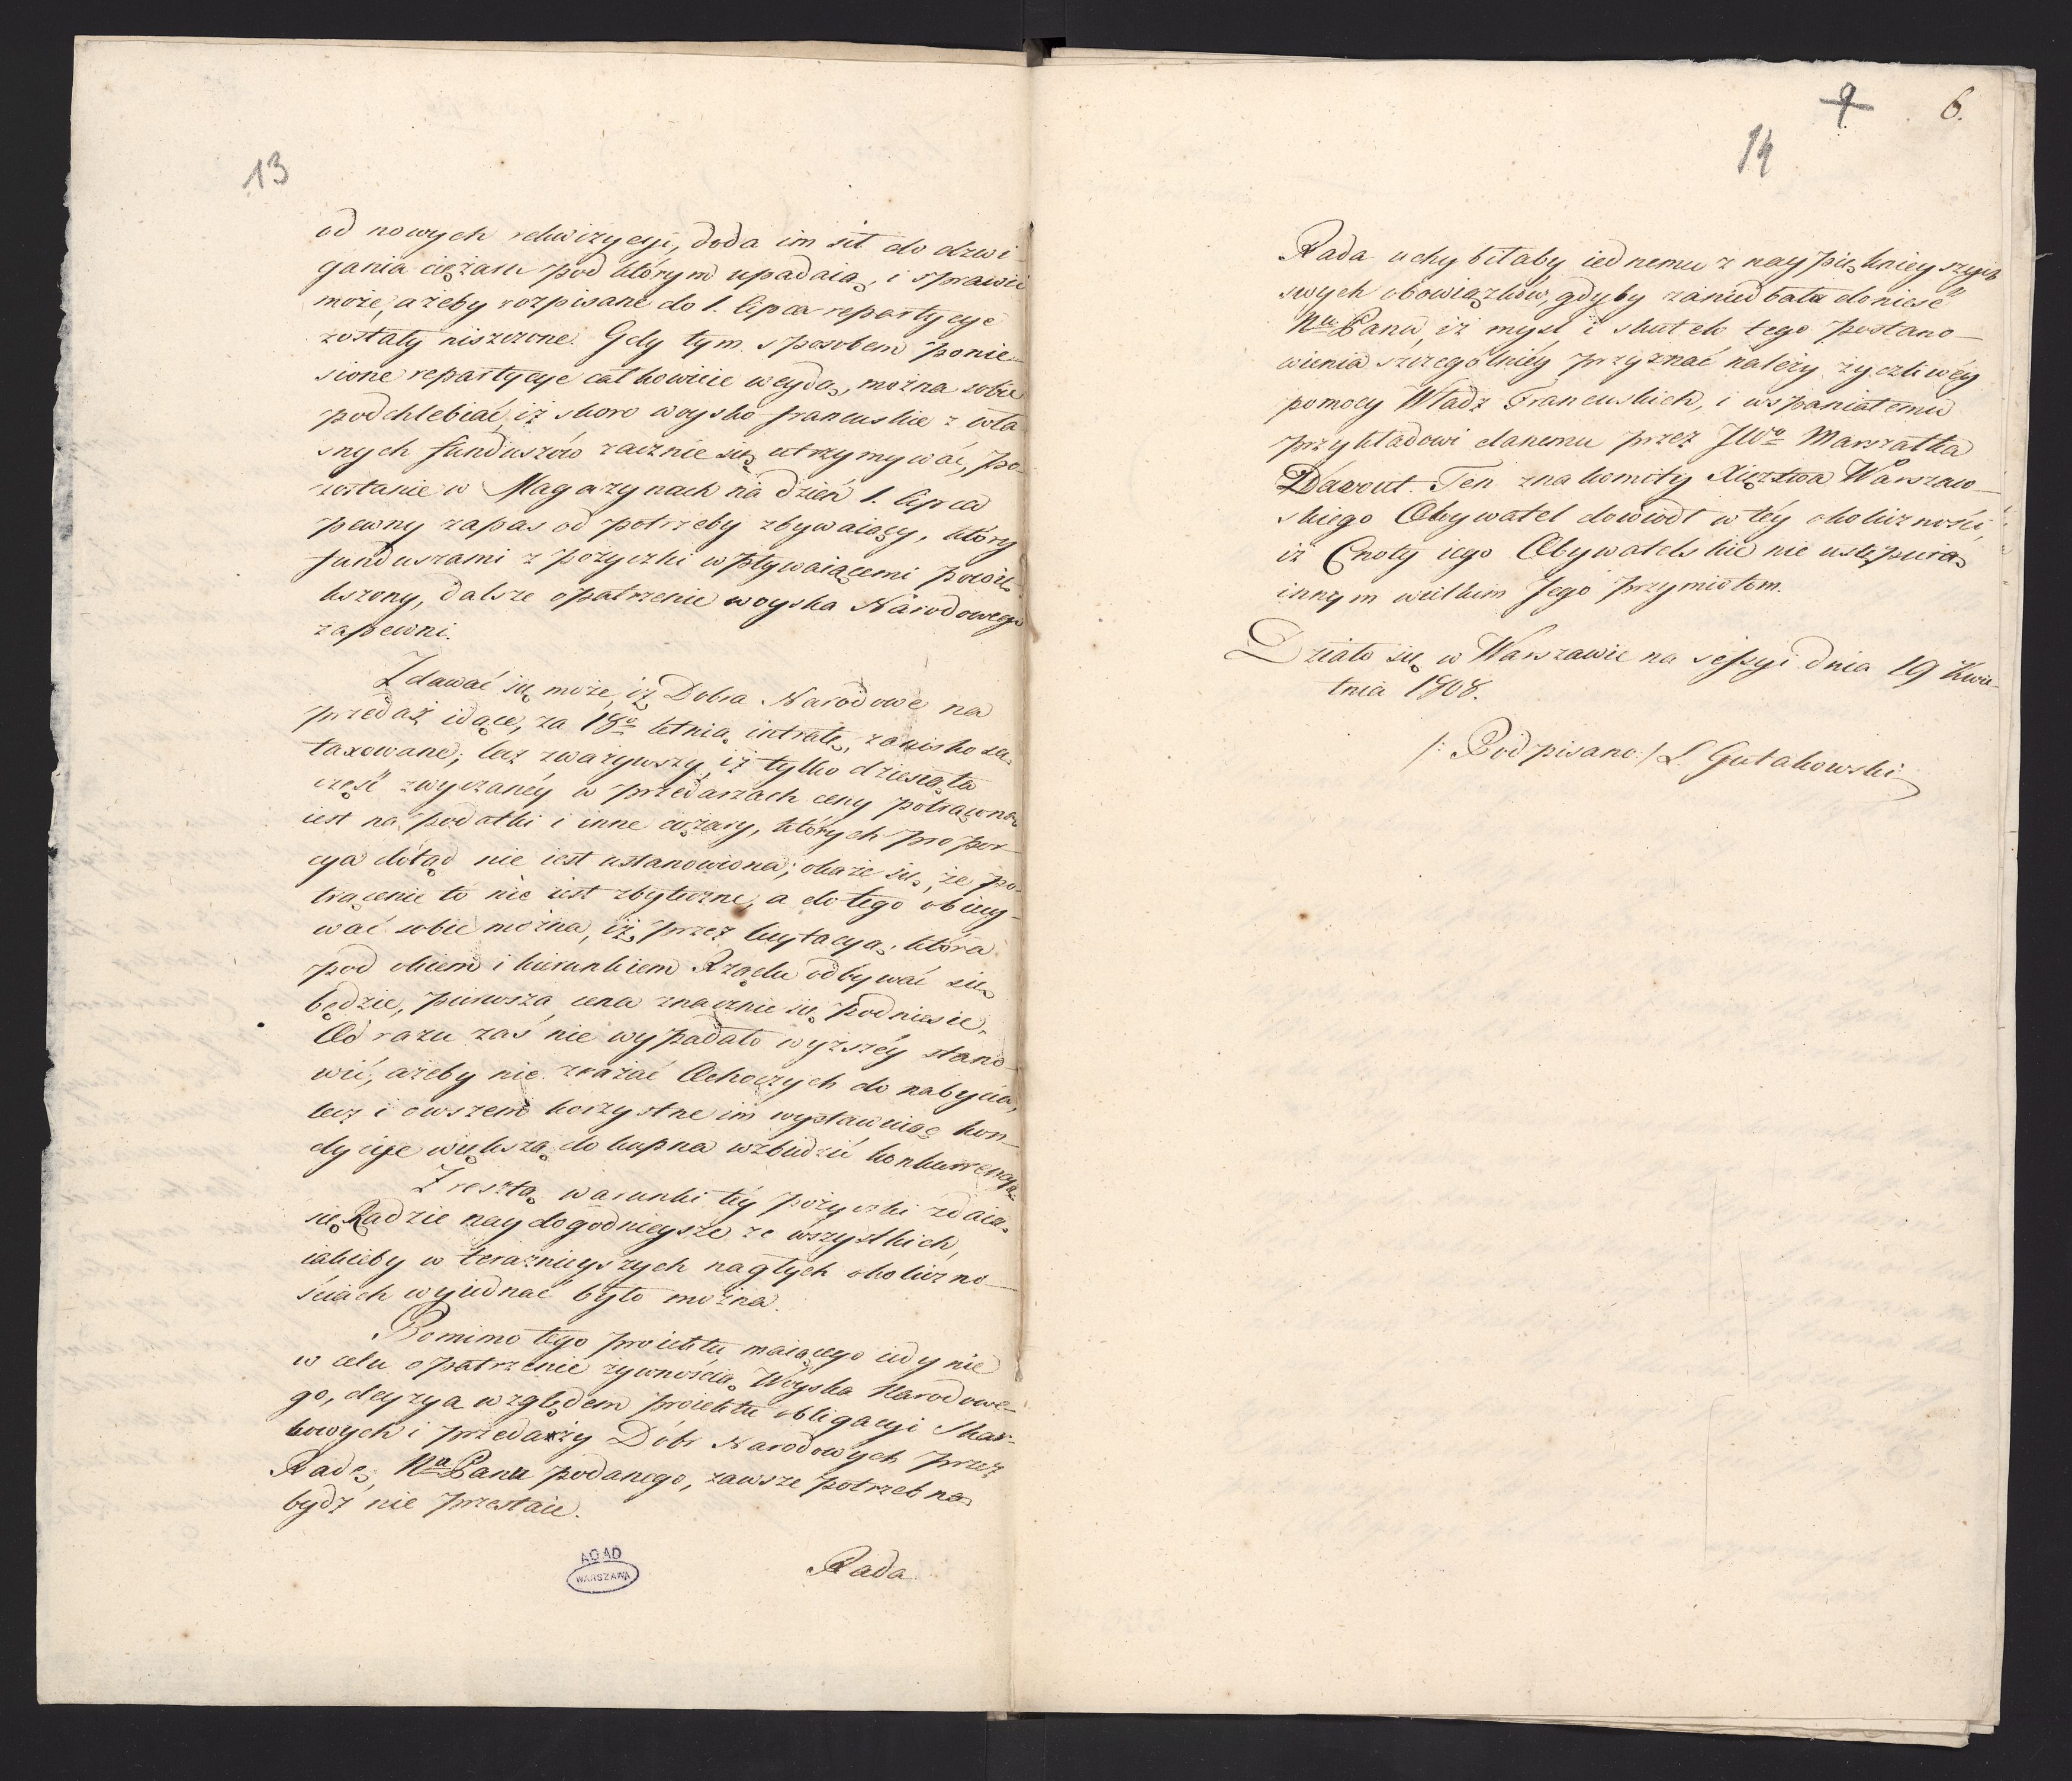 13
od nowych rekwizycyi, doda im sił do dzwi
gania ciężaru pod którym upadaią, i sprawić
może, ażeby rozpisane do 1. lipca repartycye
zostały niszczone. Gdy tym sposobem ponie-
sione repartycye całkowicie weydą, można sobie
podchlebiać, iż skoro woysko francuskie z wła-
snych funduszów zacznie się utrzymywać, po-
zostanie w Magazynach na dzień 1. lipca
pewny zapas od potrzeby zbywaiący, który
funduszami z pożyczki wpływaiącemi powię-
kszony, dalsze opatrzenie woyska Narodowego
zapewni.
Zdawać się może, iż Dobra Narodowe na
przedaż idące, za 18to letnią intratę, zanisko są
taxowane; lecz zważywszy, iż tylko dziesiąta
część zwyczaney w przedażach ceny potrącona
iest na podatki i inne ciężary, których propor-
cya dotąd nie iest ustanowiona; okaże się, że po-
trącenie to nie iest zbyteczne, a do tego obiecy-
wać sobie można, iż przez licytacyą, która
pod okiem i kierunkiem Rządu odbywać się
będzie, pierwsza cena znacznie się podniesie.
Od razu zaś nie wypadało wyższéy stano-
wić, ażeby nie zrażać Ochoczych do nabycia,
lecz i owszem korzystne im wystawiaiąc kon-
dycye większą do kupna wzbudzić konkurrencyą.
Zresztą warunki téy pożyczki zdaią
się Radzie naydogodnieysze ze wszystkich,
iakieby w teraźnieyszych nagłych okoliczno-
ściach wyiednać było można.
Pomimo tego proiektu maiącego iedynie
w celu opatrzenie żywnością Woyska Narodowe-
go, decyzya względem proiektu obligacyi Skar-
bowych i przedaży Dóbr Narodowych przez
Radę, Nu Panu podanego, zawsze potrzebną
bydź nie przestaie.
AGAD
WARSZAWA
Rada
9
6.
14
Rada uchybiłaby iednemu z naypięknieyszych
swych obowiązków, gdyby zaniedbała donieść
Nu Panu, iż myśl i skutek tego postano-
wienia szczególniéy przyznać należy życzliwéy
pomocy Władz Francuskich, i wspaniałemu
przykładowi danemu przez JWo Marszałka
Davout. Ten znakomity Xięztwa Warszaw-
skiego Obywatel dowiódł w téy okoliczności,
iż Cnoty iego Obywatelskie nie ustępuią
innym wielkim Jego przymiotom.
Działo się w Warszawie na sessyi dnia 19 Kwie-
tnia 1808.
/: Podpisano :/ L. Gutakowski